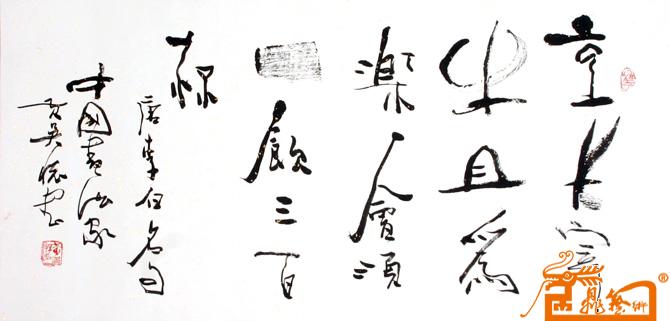 烹羊宰
牛且為
樂會須
一飲三百
杯
唐李白名句
中國書法家